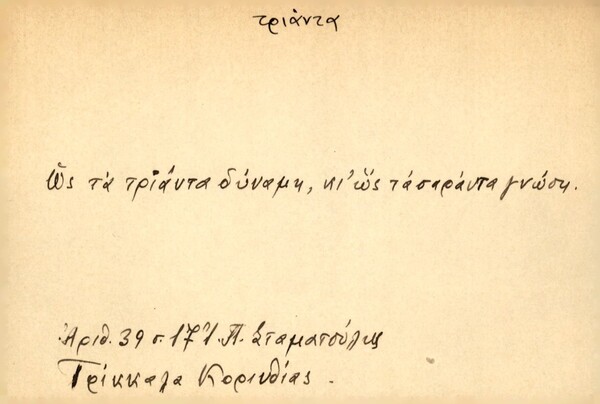 τριάντα
Ὥς τὰ τριάντα δύναμη, κι' ὥς τάσαράντα γνώση.
Ἀριθ. 39 σ. 171 Π. Σταματούλης
Τρίκκαλα Κορινθίας.